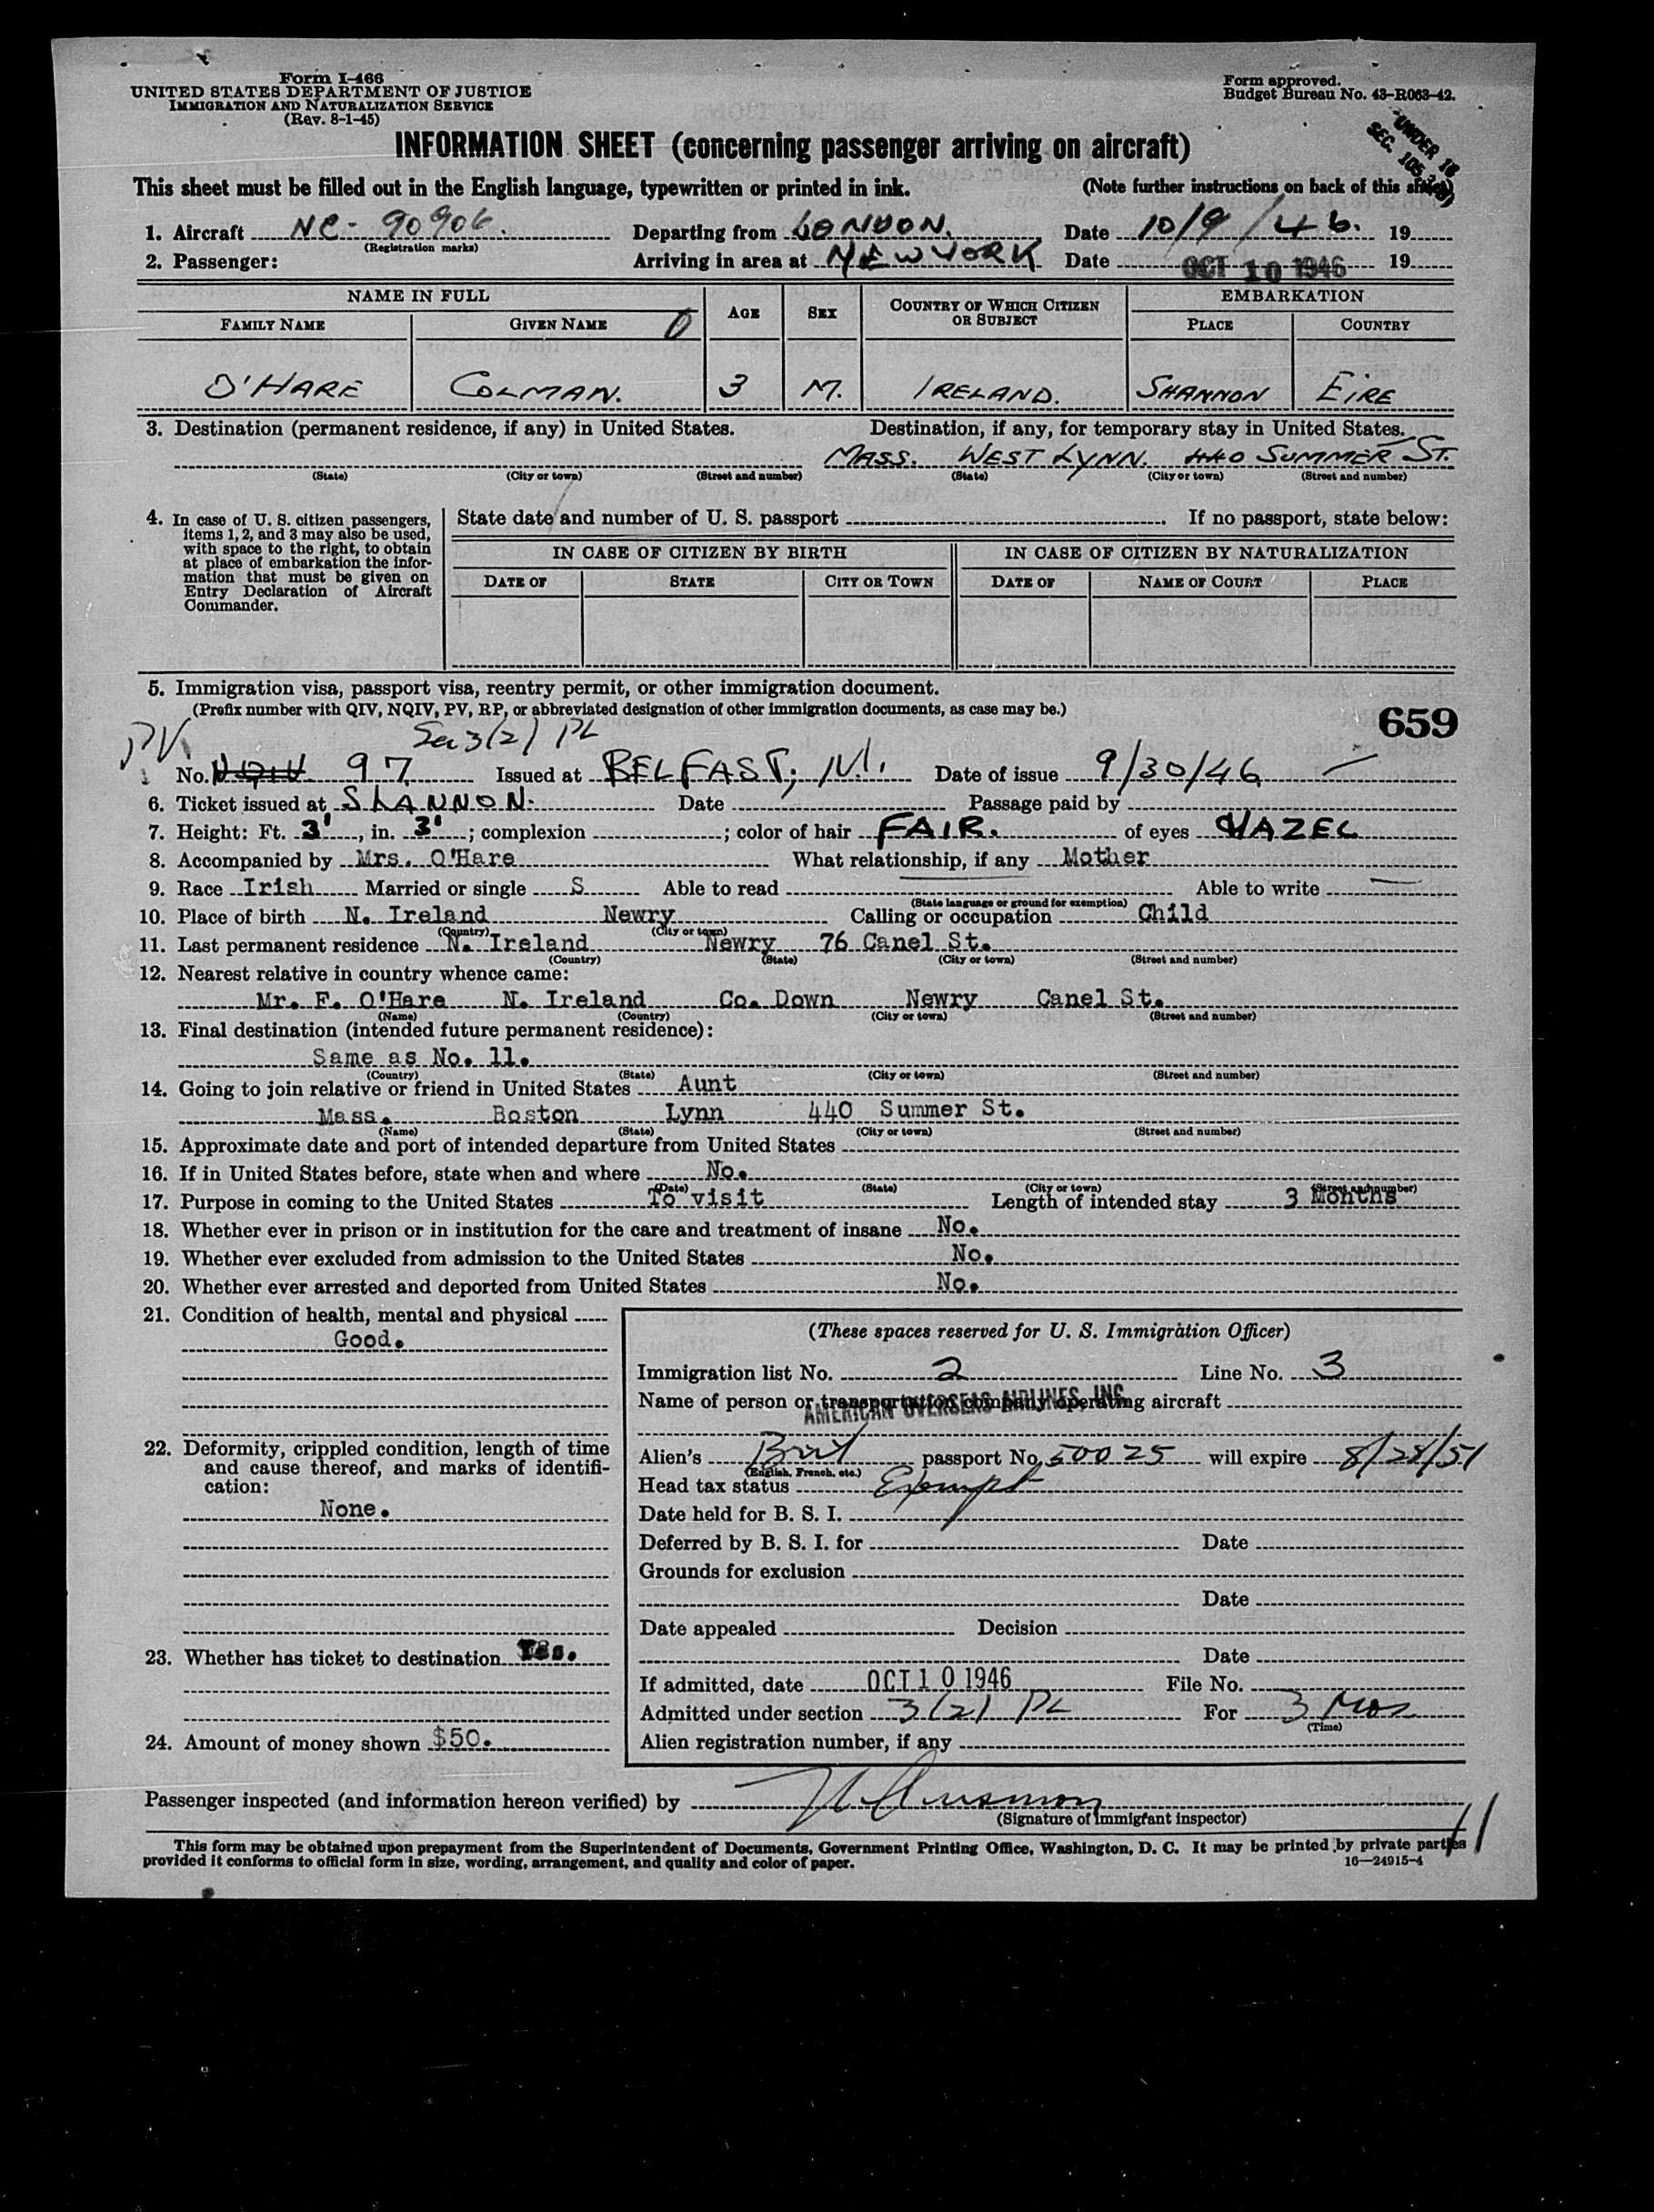 Form I-466
UNITED STATES DEPARTMENT OF JUSTICE
IMMIGRATION AND NATURALIZATION SERVICE
(Rev. 8-1-45)
Form approved.
Budget Bureau No. 43-R063-42.
UNDER 16
SEC. 105
INFORMATION SHEET (concerning passenger arriving on aircraft)
This sheet must be filled out in the English language, typewritten or printed in ink. (Note further instructions on back of this sheet)
1. Aircraft NC- 90906. Departing from LONDON. Date 10/9/46. 19
(Registration marks)
2. Passenger: Arriving in area at NEW YORK Date OCT 10 1946 19
NAME IN FULL AGE SEX COUNTRY OF WHICH CITIZEN OR SUBJECT EMBARKATION
FAMILY NAME GIVEN NAME PLACE COUNTRY
O'HARE COLMAN. 3 M. IRELAND. SHANNON EIRE
3. Destination (permanent residence, if any) in United States. Destination, if any, for temporary stay in United States.
MASS. WEST LYNN. 440 SUMMER ST.
(State) (City or town) (Street and number) (State) (City or town) (Street and number)
4. In case of U. S. citizen passengers, items 1, 2, and 3 may also be used, with space to the right, to obtain at place of embarkation the information that must be given on Entry Declaration of Aircraft Commander.
State date and number of U. S. passport If no passport, state below:
IN CASE OF CITIZEN BY BIRTH IN CASE OF CITIZEN BY NATURALIZATION
DATE OF STATE CITY OR TOWN DATE OF NAME OF COURT PLACE
5. Immigration visa, passport visa, reentry permit, or other immigration document.
(Prefix number with QIV, NQIV, PV, RP, or abbreviated designation of other immigration documents, as case may be.)
659
PV Sec 3(2) PL
No. NQIV 97 Issued at BELFAST, N.I. Date of issue 9/30/46
6. Ticket issued at SHANNON. Date Passage paid by
7. Height: Ft. 3', in. 3'; complexion ; color of hair FAIR. of eyes HAZEL
8. Accompanied by Mrs. O'Hare What relationship, if any Mother
9. Race Irish Married or single S Able to read Able to write
(State language or ground for exemption)
10. Place of birth N. Ireland Newry Calling or occupation Child
(Country) (City or town)
11. Last permanent residence N. Ireland Newry 76 Canel St.
(Country) (State) (City or town) (Street and number)
12. Nearest relative in country whence came:
Mr. F. O'Hare N. Ireland Co. Down Newry Canel St.
(Name) (Country) (City or town) (Street and number)
13. Final destination (intended future permanent residence):
Same as No. 11.
(Country) (State) (City or town) (Street and number)
14. Going to join relative or friend in United States Aunt
Mass. Boston Lynn 440 Summer St.
(Name) (State) (City or town) (Street and number)
15. Approximate date and port of intended departure from United States
16. If in United States before, state when and where No.
(Date) (State) (City or town) (Street and number)
17. Purpose in coming to the United States To visit Length of intended stay 3 Months
18. Whether ever in prison or in institution for the care and treatment of insane No.
19. Whether ever excluded from admission to the United States No.
20. Whether ever arrested and deported from United States No.
21. Condition of health, mental and physical
Good.
22. Deformity, crippled condition, length of time and cause thereof, and marks of identification:
None.
23. Whether has ticket to destination Yes.
24. Amount of money shown $50.
(These spaces reserved for U. S. Immigration Officer)
Immigration list No. 2 Line No. 3
Name of person or transportation company operating aircraft
AMERICAN OVERSEAS AIRLINES, INC.
Alien's Brit passport No. 50025 will expire 8/28/51
(English, French, etc.)
Head tax status Exempt
Date held for B. S. I.
Deferred by B. S. I. for Date
Grounds for exclusion
Date
Date appealed Decision
Date
If admitted, date OCT 10 1946 File No.
Admitted under section 3(2) PL For 3 Mos
(Time)
Alien registration number, if any
Passenger inspected (and information hereon verified) by
(Signature of immigrant inspector)
This form may be obtained upon prepayment from the Superintendent of Documents, Government Printing Office, Washington, D. C. It may be printed by private parties
provided it conforms to official form in size, wording, arrangement, and quality and color of paper. 16—24915-4